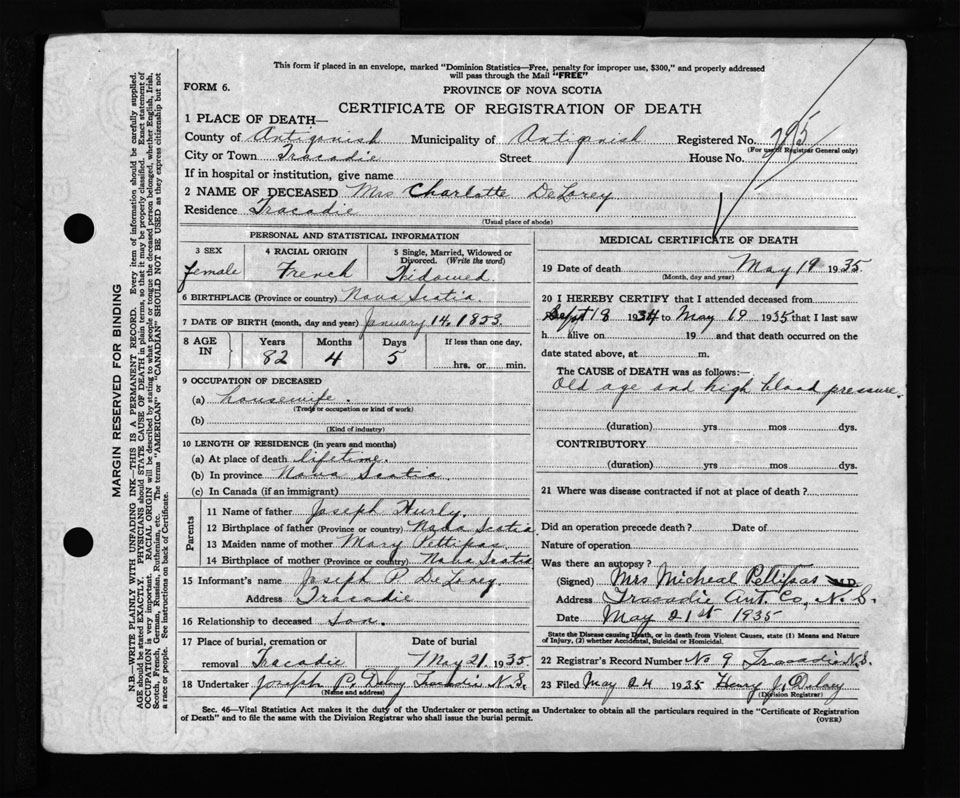 This form if placed in an envelope, marked "Dominion Statistics—Free, penalty for improper use, $300," and properly addressed
will pass through the Mail "FREE"
FORM 6.
PROVINCE OF NOVA SCOTIA
CERTIFICATE OF REGISTRATION OF DEATH
1 PLACE OF DEATH—
County of Antigonish Municipality of Antigonish Registered No. 295
(For use of Registrar General only)
City or Town Tracadie Street House No.
If in hospital or institution, give name
2 NAME OF DECEASED Mrs Charlotte DeLorey
Residence Tracadie
(Usual place of abode)
PERSONAL AND STATISTICAL INFORMATION
3 SEX 4 RACIAL ORIGIN 5 Single, Married, Widowed or Divorced. (Write the word)
female French Widowed
6 BIRTHPLACE (Province or country) Nova Scotia.
7 DATE OF BIRTH (month, day and year) January 14, 1853.
8 AGE IN Years Months Days If less than one day,
82 4 5 hrs. or min.
9 OCCUPATION OF DECEASED
(a) housewife.
(Trade or occupation or kind of work)
(b)
(Kind of industry)
10 LENGTH OF RESIDENCE (in years and months)
(a) At place of death lifetime.
(b) In province Nova Scotia
(c) In Canada (if an immigrant)
Parents
11 Name of father Joseph Hurly.
12 Birthplace of father (Province or country) Nova Scotia
13 Maiden name of mother Mary Pettipas.
14 Birthplace of mother (Province or country) Nova Scotia
15 Informant's name Joseph P. DeLorey.
Address Tracadie
16 Relationship to deceased son.
17 Place of burial, cremation or removal Tracadie Date of burial May 21, 1935.
18 Undertaker Joseph P. Tracadie N.S.
(Name and address)
MEDICAL CERTIFICATE OF DEATH
19 Date of death May 19 1935
(Month, day and year)
20 I HEREBY CERTIFY that I attended deceased from
Sept 18 1934 to May 19 1935 that I last saw
h alive on 19 and that death occurred on the
date stated above, at m.
The CAUSE of DEATH was as follows:—
Old age and high blood pressure.
(duration) yrs mos dys.
CONTRIBUTORY
(duration) yrs mos dys.
21 Where was disease contracted if not at place of death?
Did an operation precede death? Date of
Nature of operation
Was there an autopsy?
(Signed) Mrs Micheal Pettipas M.D.
Address Tracadie Ant. Co, N.S.
Date May 21st 1935
State the Disease causing Death, or in death from Violent Causes, state (1) Means and Nature
of Injury, (2) whether Accidental, Suicidal or Homicidal.
22 Registrar's Record Number No 9 Tracadie N.S.
23 Filed May 24 1935 Henry J. Delorey
(Division Registrar)
Sec. 46—Vital Statistics Act makes it the duty of the Undertaker or person acting as Undertaker to obtain all the particulars required in the "Certificate of Registration
of Death" and to file the same with the Division Registrar who shall issue the burial permit.
(OVER)
MARGIN RESERVED FOR BINDING
N.B.—WRITE PLAINLY WITH UNFADING INK—THIS IS A PERMANENT RECORD. Every item of information should be carefully supplied.
AGE should be stated EXACTLY. PHYSICIANS should STATE CAUSE OF DEATH in plain terms, so that it may be properly classified. Exact statement of
OCCUPATION is very important. RACIAL ORIGIN will be described by stating to what people or tongue the deceased person belonged, whether English, Irish,
Scotch, French, German, Russian, Ruthenian, etc. The terms "AMERICAN" or "CANADIAN" SHOULD NOT BE USED as they express citizenship but not
a race or people. See instructions on back of Certificate.